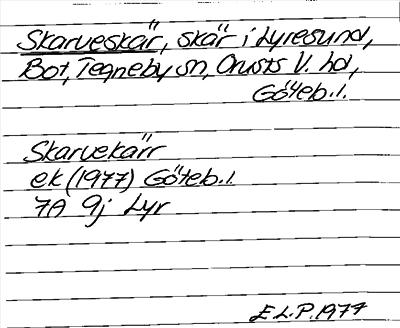 Skarveskär, skär i Lyresund,
Bot, Tegneby sn, Orusts V. hd,
Göteb. l.
Skarvekärr
ek (1977) Göteb. l.
7A 9j Lyr
E.L.P. 1977